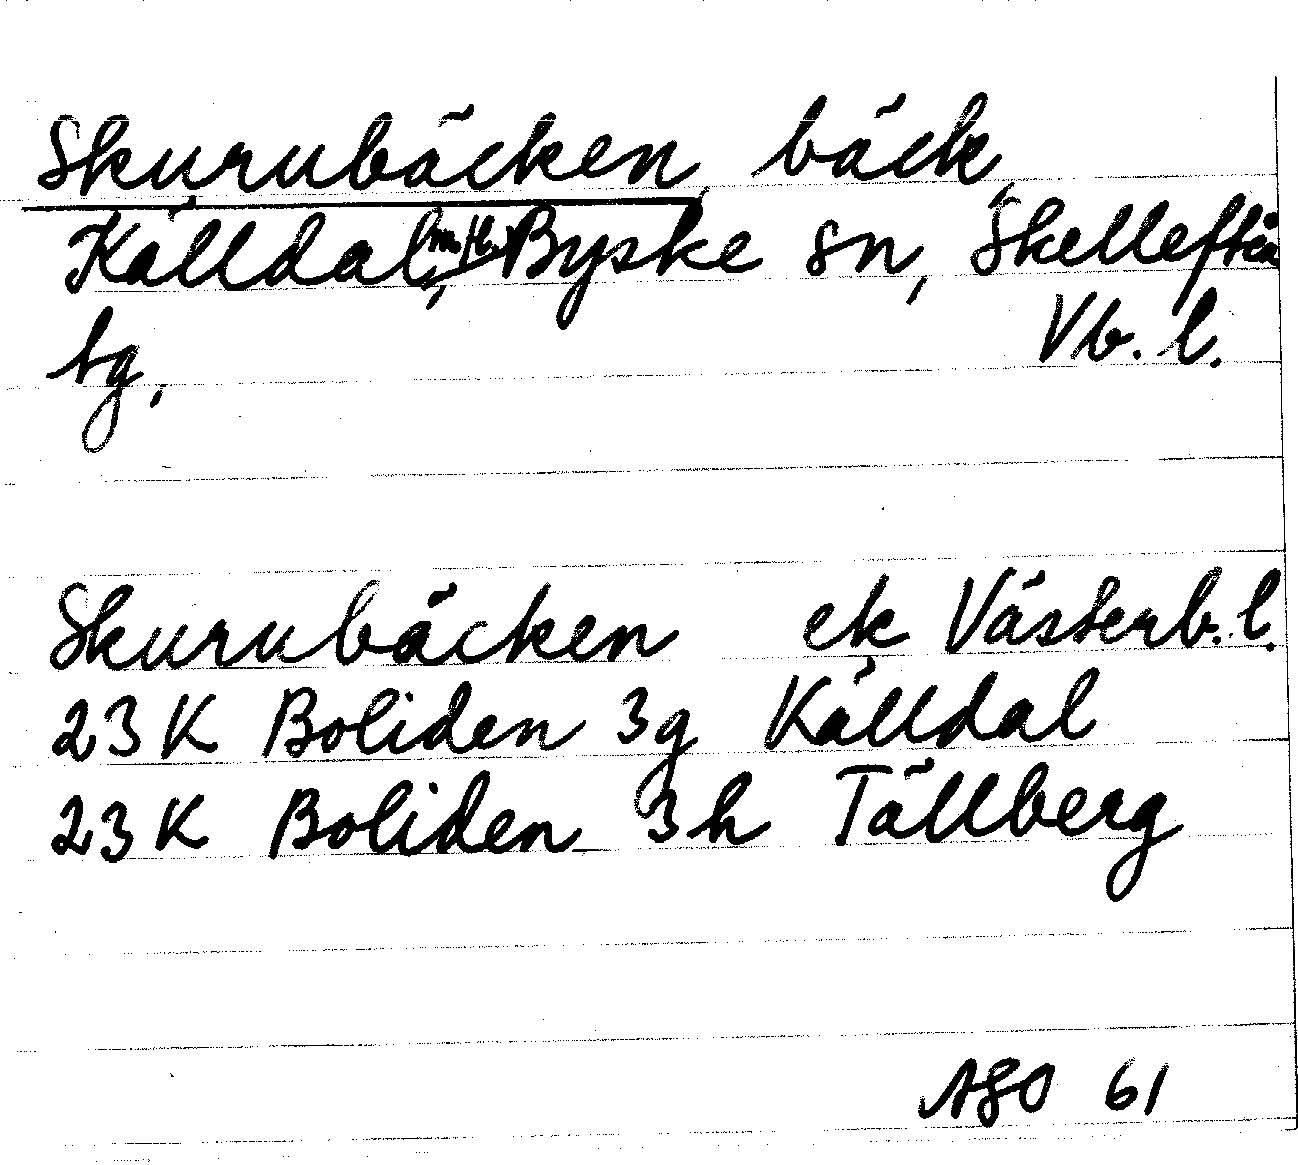 Skurubäcken, bäck,
Källdal, Byske sn, Skellefteå
tg, Vb. l.
Skurubäcken ek Västerb. l.
23 K Boliden 3g Källdal
23 K Boliden 3h Tällberg
ASO 61